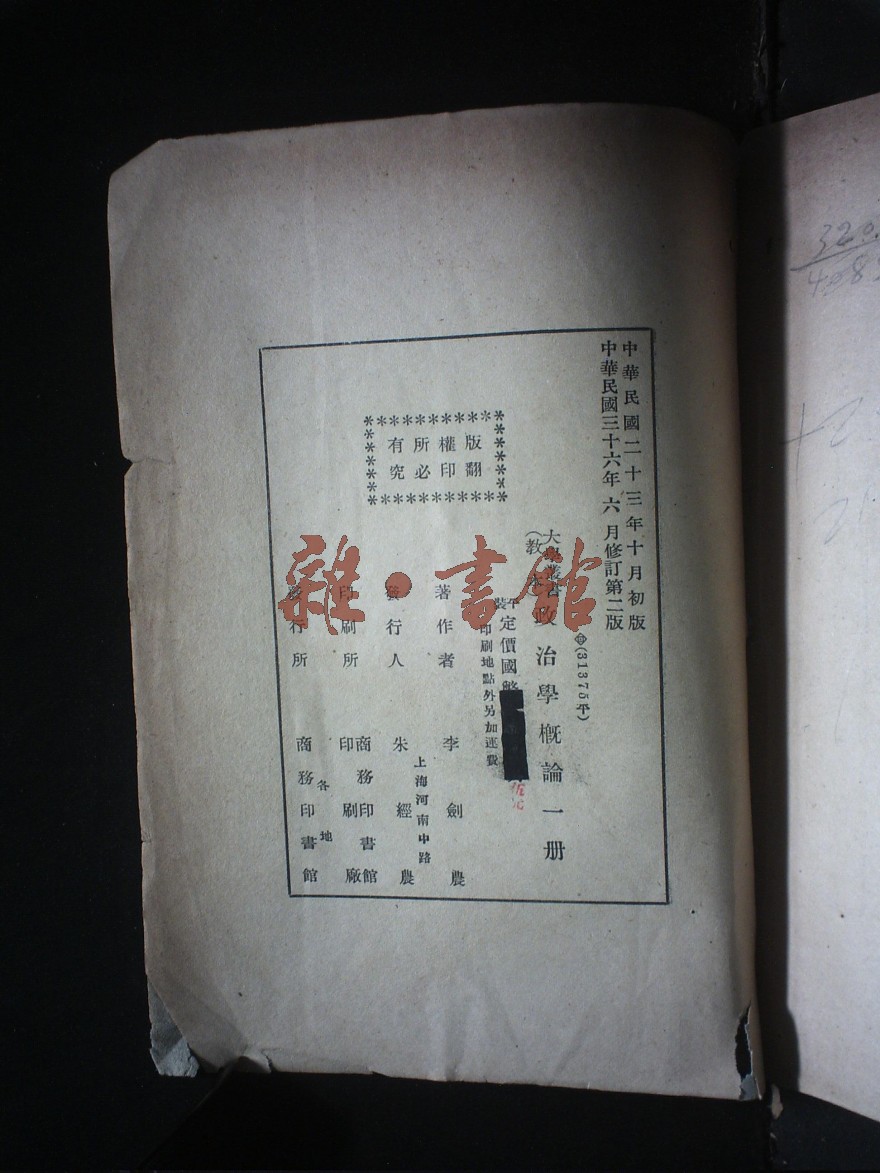 中華民國二十三年十月初版
中華民國三十六年六月修訂第二版
(31375平)
大學叢書
(教本)
政治學概論一册
平裝 定價國幣
印刷地點外另加運費
版權所有
翻印必究
著作者 李劍農
發行人 朱經農
上海河南中路
印刷所 商務印書館
印刷廠
發行所 商務印書館
各地
雜·書館
320.